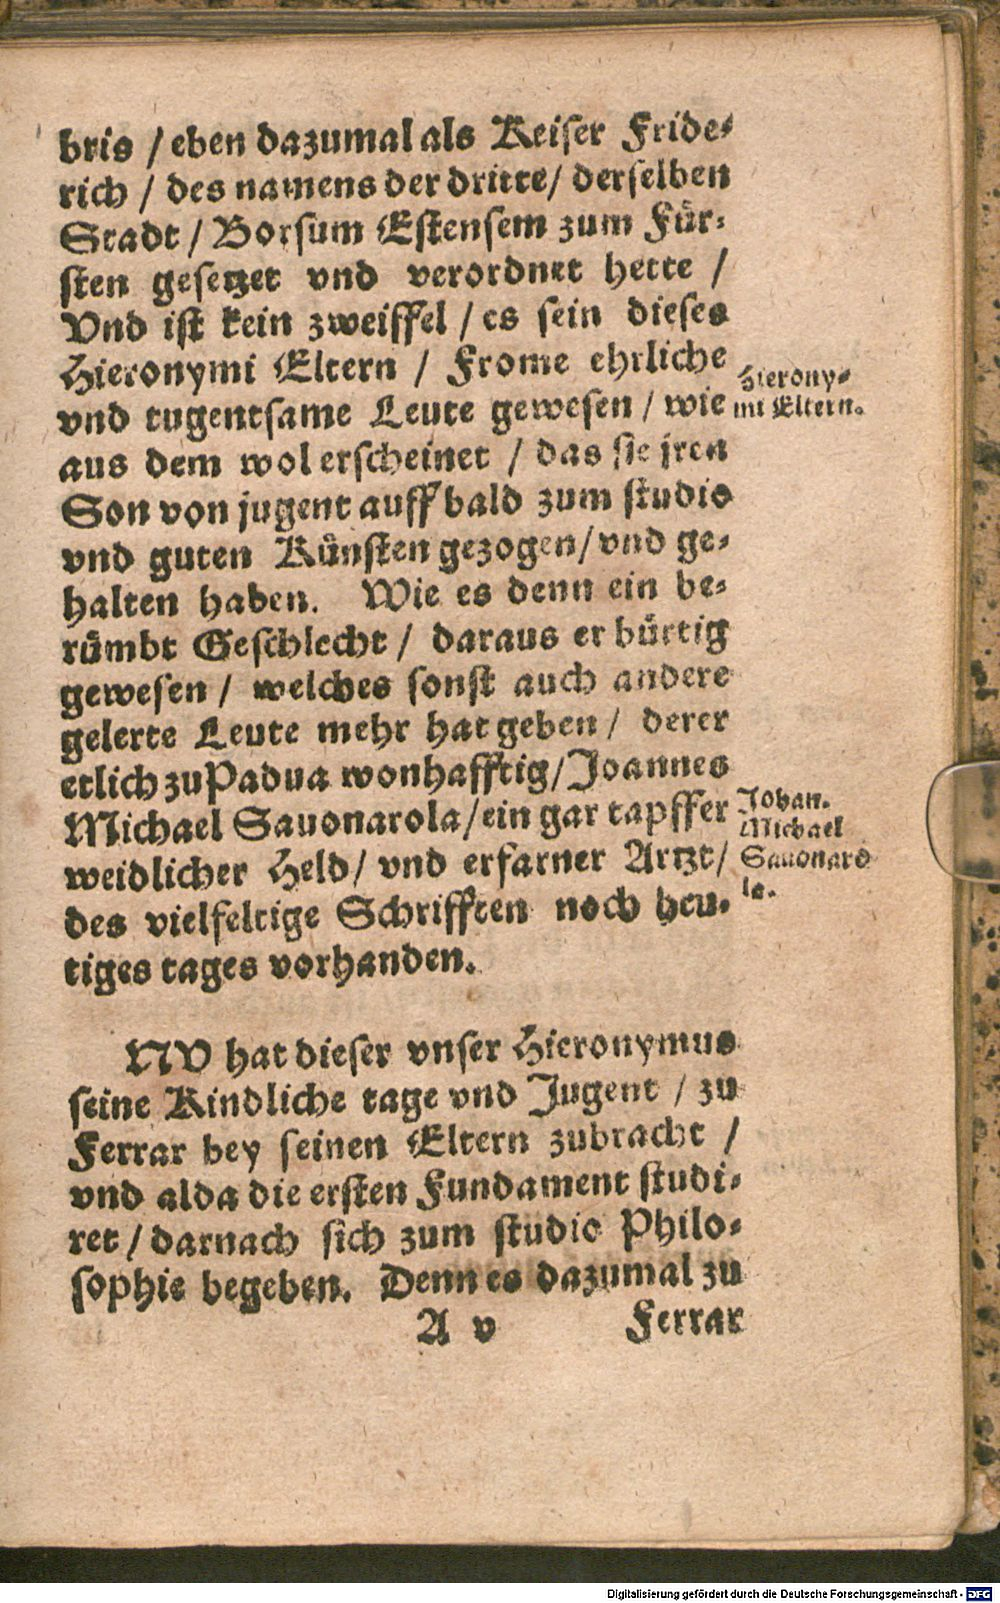 bris / eben dazumal als Keiser Fride⸗
rich / des namens der dritte / derselben
Stadt / Borsum Estensem zum Für⸗
sten gesetzet vnd verordnet hette /
Vnd ist kein zweiffel / es sein dieses
Hieronymi Eltern / Frome ehrliche
vnd tugentsame Leute gewesen / wie
aus dem wol erscheinet / das sie jren
Son von jugent auff bald zum studio
vnd guten Künsten gezogen / vnd ge⸗
halten haben. Wie es denn ein be⸗
rümbt Geschlecht / daraus er bürtig
gewesen / welches sonst auch andere
gelerte Leute mehr hat geben / derer
etlich zu Padua wonhafftig / Joannes
Michael Sauonarola / ein gar tapffer
weidlicher Held / vnd erfarner Artzt /
des vielfeltige Schrifften noch heu⸗
tiges tages vorhanden.
Hierony⸗
mi Eltern.
Johan.
Michael
Sauonaro
la.
NV hat dieser vnser Hieronymus
seine Kindliche tage vnd Jugent / zu
Ferrar bey seinen Eltern zubracht /
vnd alda die ersten Fundament studi⸗
ret / darnach sich zum studio Philo⸗
sophie begeben. Denn es dazumal zu
A v Ferrar
Digitalisierung gefördert durch die Deutsche Forschungsgemeinschaft - DFG